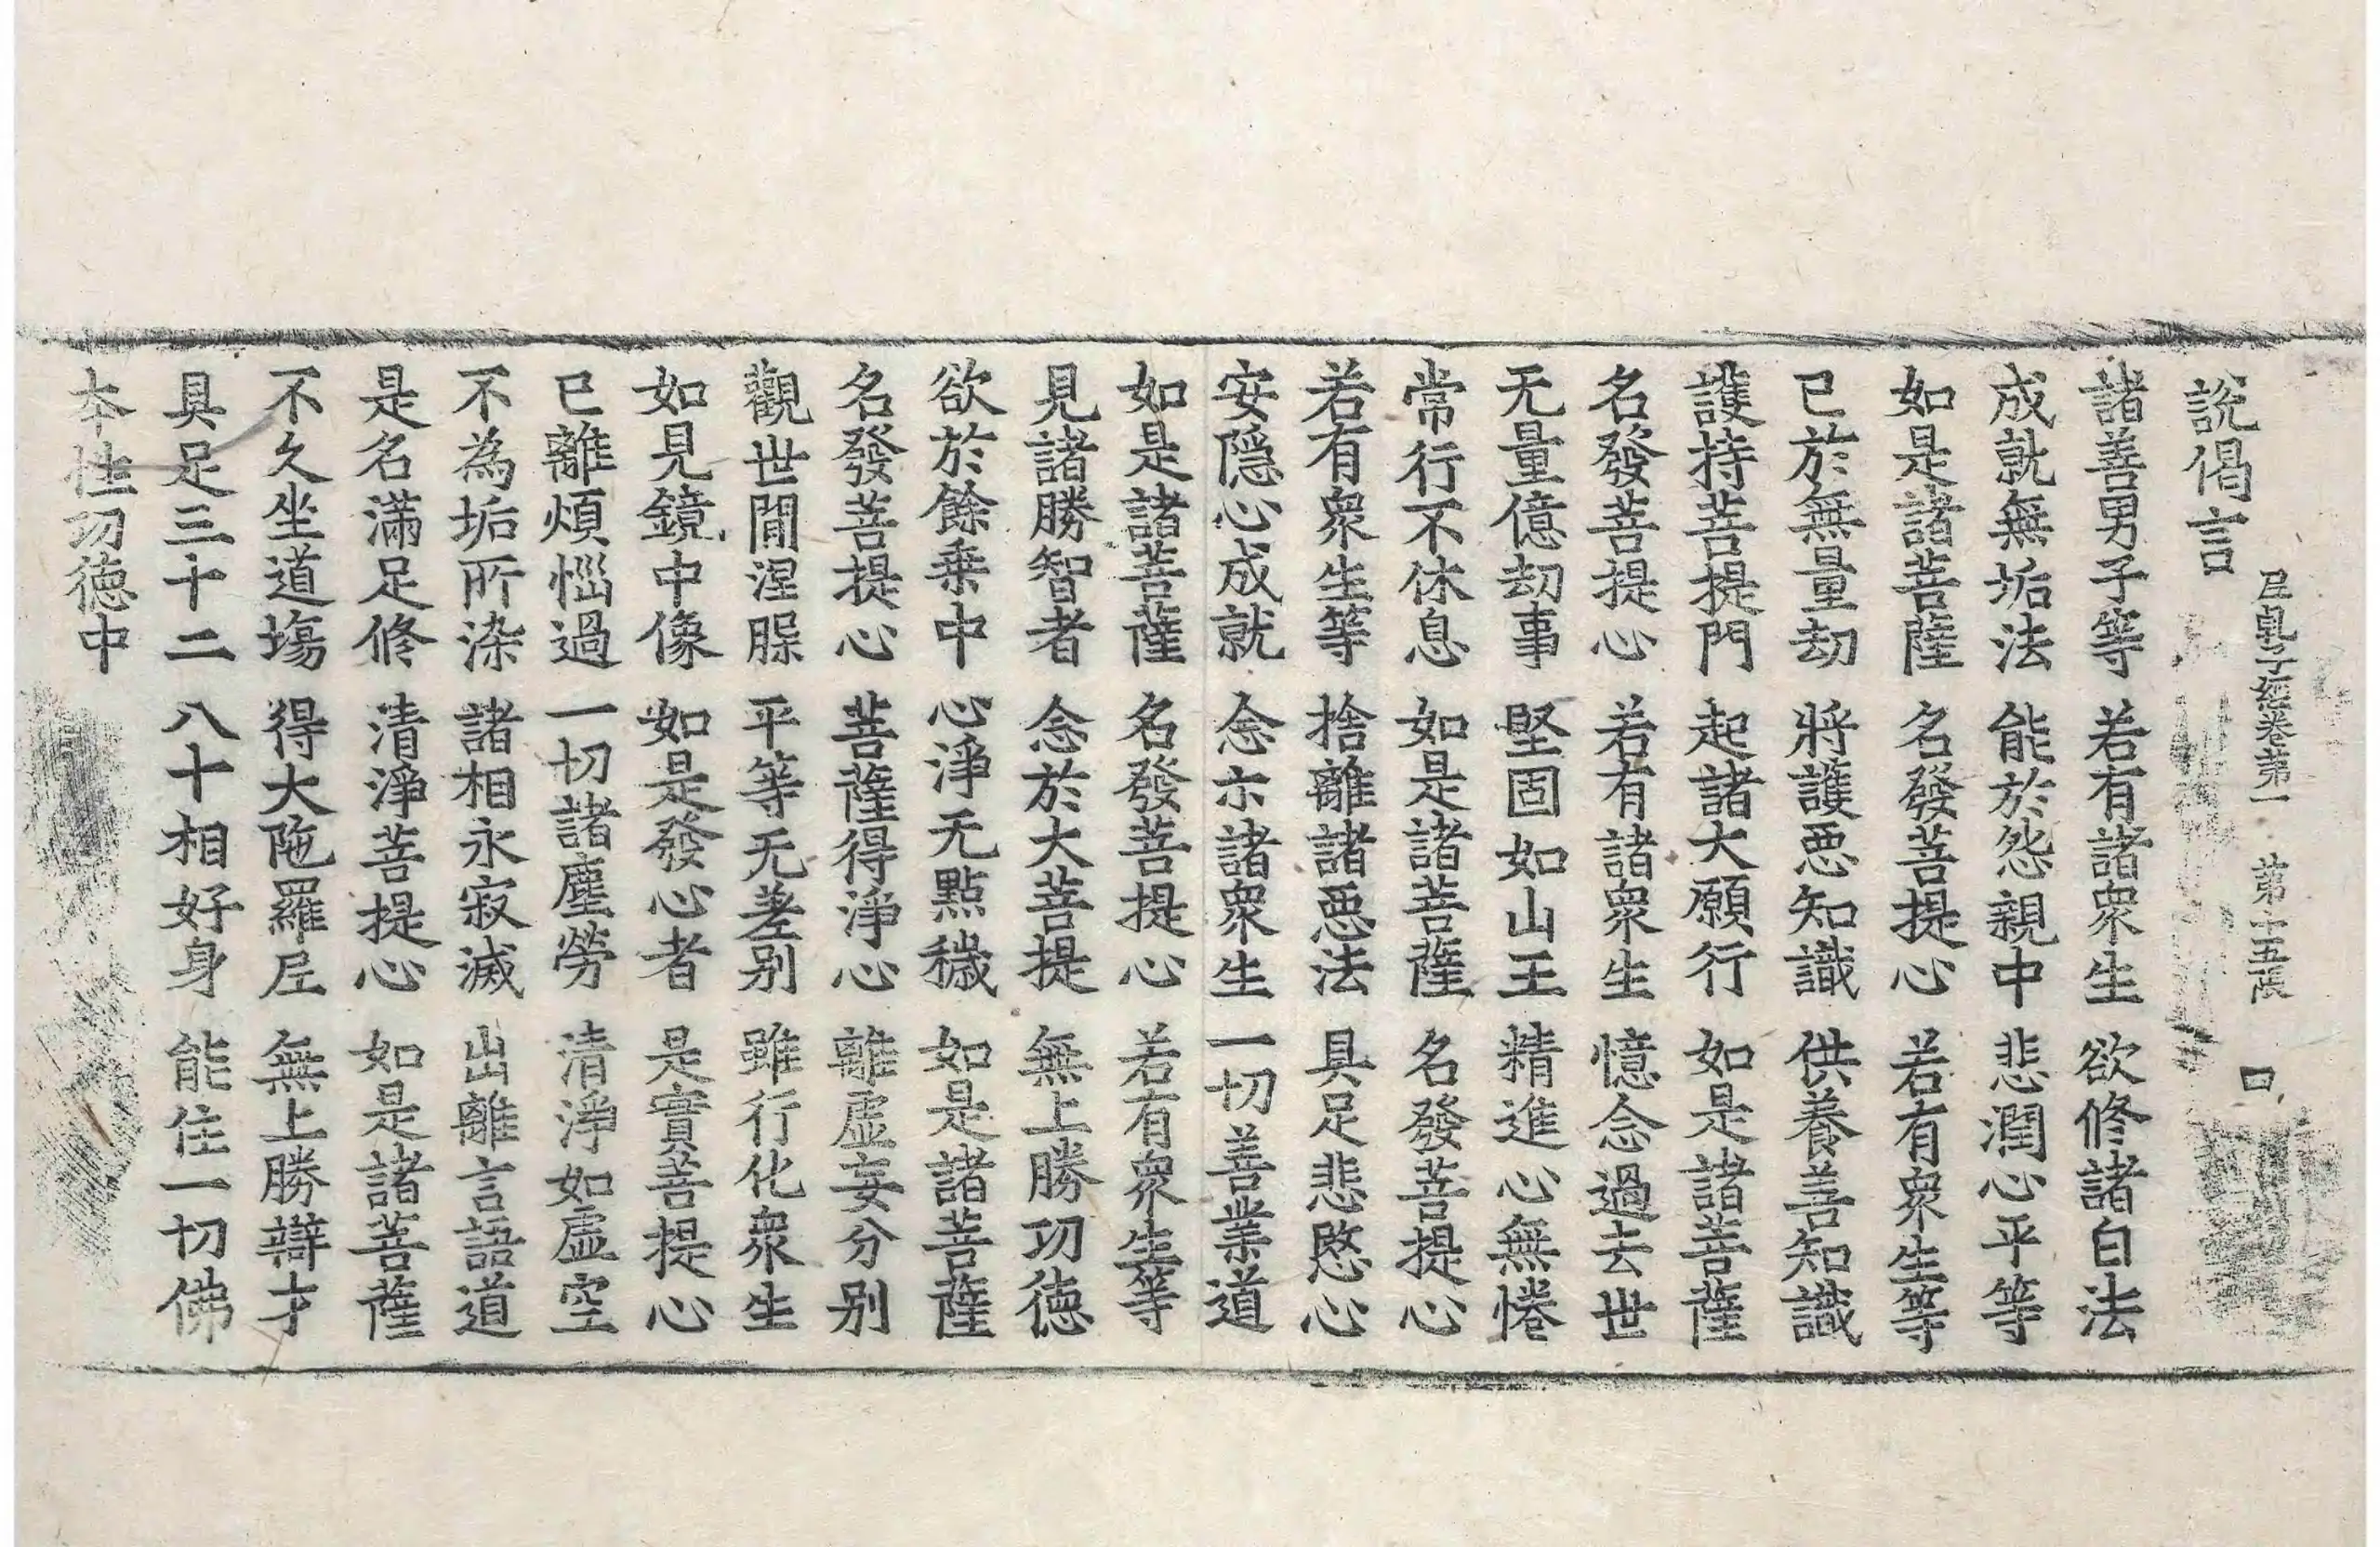 尼乹子經卷第一 第十五張 口
說偈言
諸善男子等 若有諸衆生 欲修諸白法
成就無垢法 能於怨親中 悲潤心平等
如是諸菩薩 名發菩提心 若有衆生等
已於無量劫 將護惡知識 供養善知識
護持菩提門 起諸大願行 如是諸菩薩
名發菩提心 若有諸衆生 憶念過去世
无量億劫事 堅固如山王 精進心無惓
常行不休息 如是諸菩薩 名發菩提心
若有衆生等 捨離諸惡法 具足悲愍心
安隱心成就 念示諸衆生 一切善業道
如是諸菩薩 名發菩提心 若有衆生等
見諸勝智者 念於大菩提 無上勝功德
欲於餘乗中 心淨无點穢 如是諸菩薩
名發菩提心 菩薩得淨心 離虛妄分别
觀世間涅槃 平等无差别 雖行化衆生
如見鏡中像 如是發心者 是實菩提心
已離煩惱過 一切諸塵勞 清淨如虛空
不為垢所染 諸相永寂滅 出離言語道
是名滿足修 清淨菩提心 如是諸菩薩
不久坐道塲 得大陁羅尼 無上勝辯才
具足三十二 八十相好身 能住一切佛
本性功德中